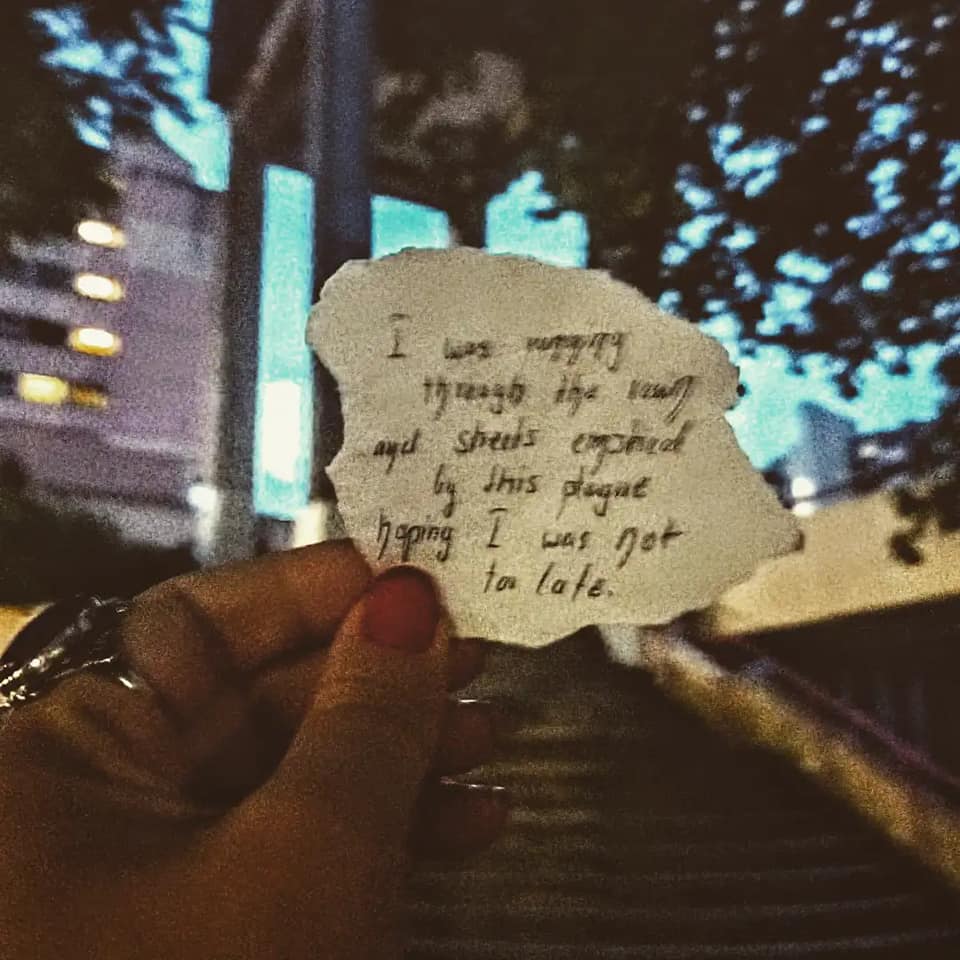 I was running
through the town
and streets emptied
by this plague
hoping I was not
too late.